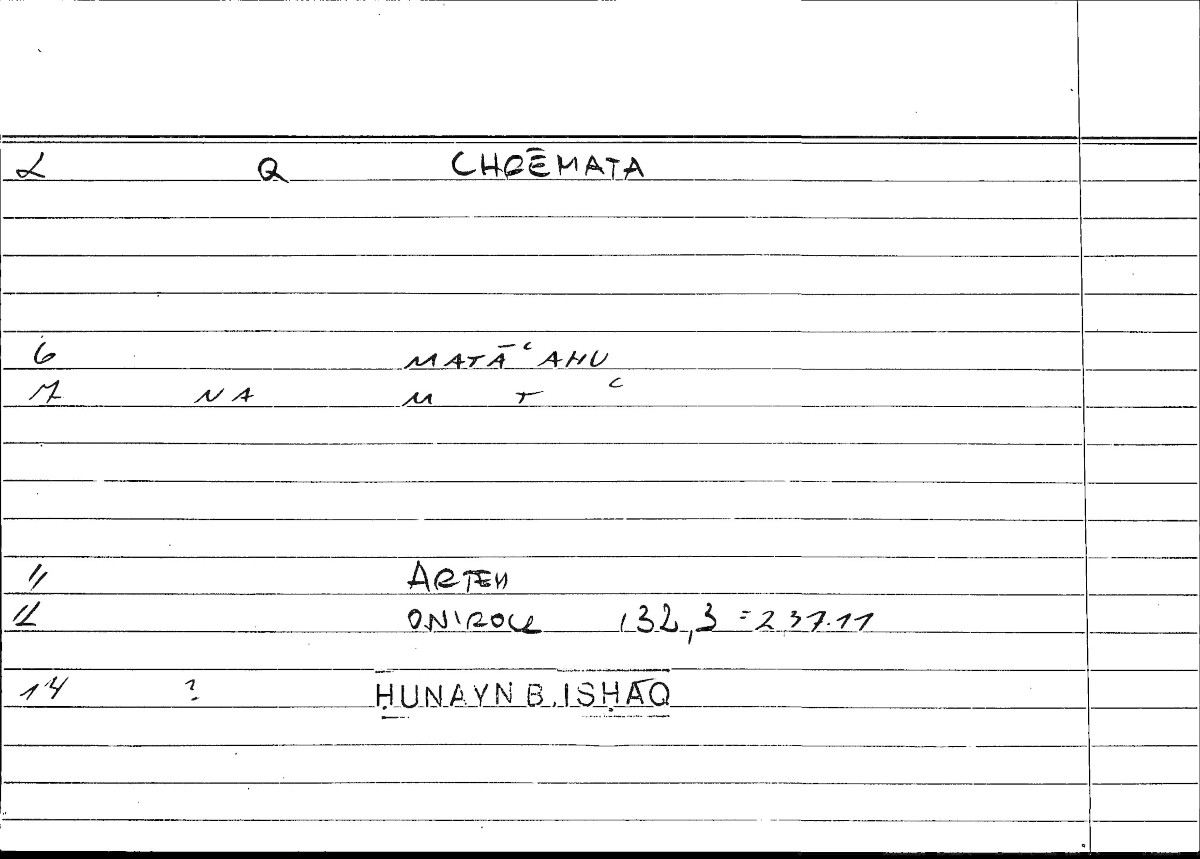 2 Q CHRĒMATA
6 MATĀʿAHU
7 NA M T ʿ
11 ARTEM
12 ONIROCR 132,3 = 237.11
14 ? ḤUNAYN B. ISḤĀQ